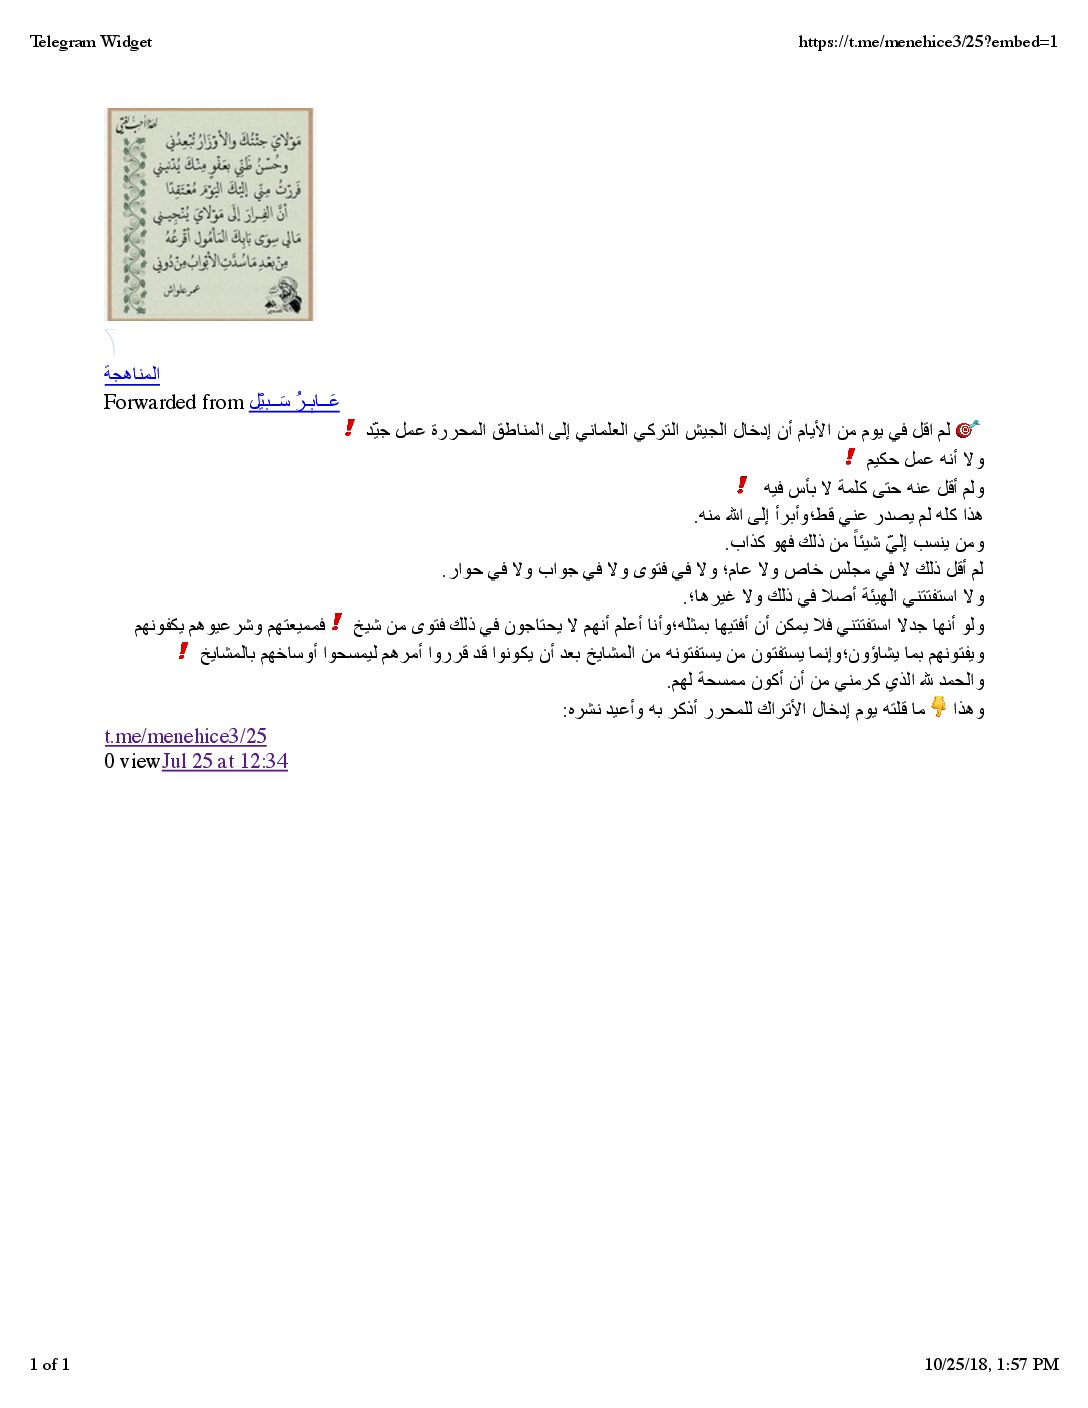 Telegram Widget
https://t.me/menehice3/25?embed=1
مَوْلَايَ جِئْتُكَ والأوْزَارُ تُبْعِدُني
وحُسْنُ ظَنِّي بِعَفْوٍ مِنْكَ يُدْنيـني
فَرَرْتُ مِنِّي إِلَيْكَ اليَوْمَ مُعْتَقِدًا
أنَّ الفِـرارَ إلَى مَوْلايَ يُنْجِيـني
مَالي سِوَى بَابِكَ المَأمُولِ أَقْرَعُهُ
مِنْ بَعْدِ مَا سُدَّتِ الأَبْوَابُ مِنْ دُوني
عمر علواش
المناهجة
Forwarded from عَـــابِـرُ سَـــبِيْلِ
🎯 لم اقل في يوم من الأيام أن إدخال الجيش التركي العلماني إلى المناطق المحررة عمل جيّد ❗
ولا أنه عمل حكيم ❗
ولم أقل عنه حتى كلمة لا بأس فيه ❗
هذا كله لم يصدر عني قط؛وأبرأ إلى الله منه.
ومن ينسب إليّ شيئاً من ذلك فهو كذاب.
لم أقل ذلك لا في مجلس خاص ولا عام؛ ولا في فتوى ولا في جواب ولا في حوار.
ولا استفتتني الهيئة أصلا في ذلك ولا غيرها؛.
ولو أنها جدلا استفتتني فلا يمكن أن أفتيها بمثله؛وأنا أعلم أنهم لا يحتاجون في ذلك فتوى من شيخ ❗ فمميعتهم وشرعيوهم يكفونهم
ويفتونهم بما يشاؤون؛وإنما يستفتون من يستفتونه من المشايخ بعد أن يكونوا قد قرروا أمرهم ليمسحوا أوساخهم بالمشايخ ❗
والحمد لله الذي كرمني من أن أكون ممسحة لهم.
وهذا 👇 ما قلته يوم إدخال الأتراك للمحرر أذكر به وأعيد نشره:
t.me/menehice3/25
0 viewJul 25 at 12:34
1 of 1
10/25/18, 1:57 PM